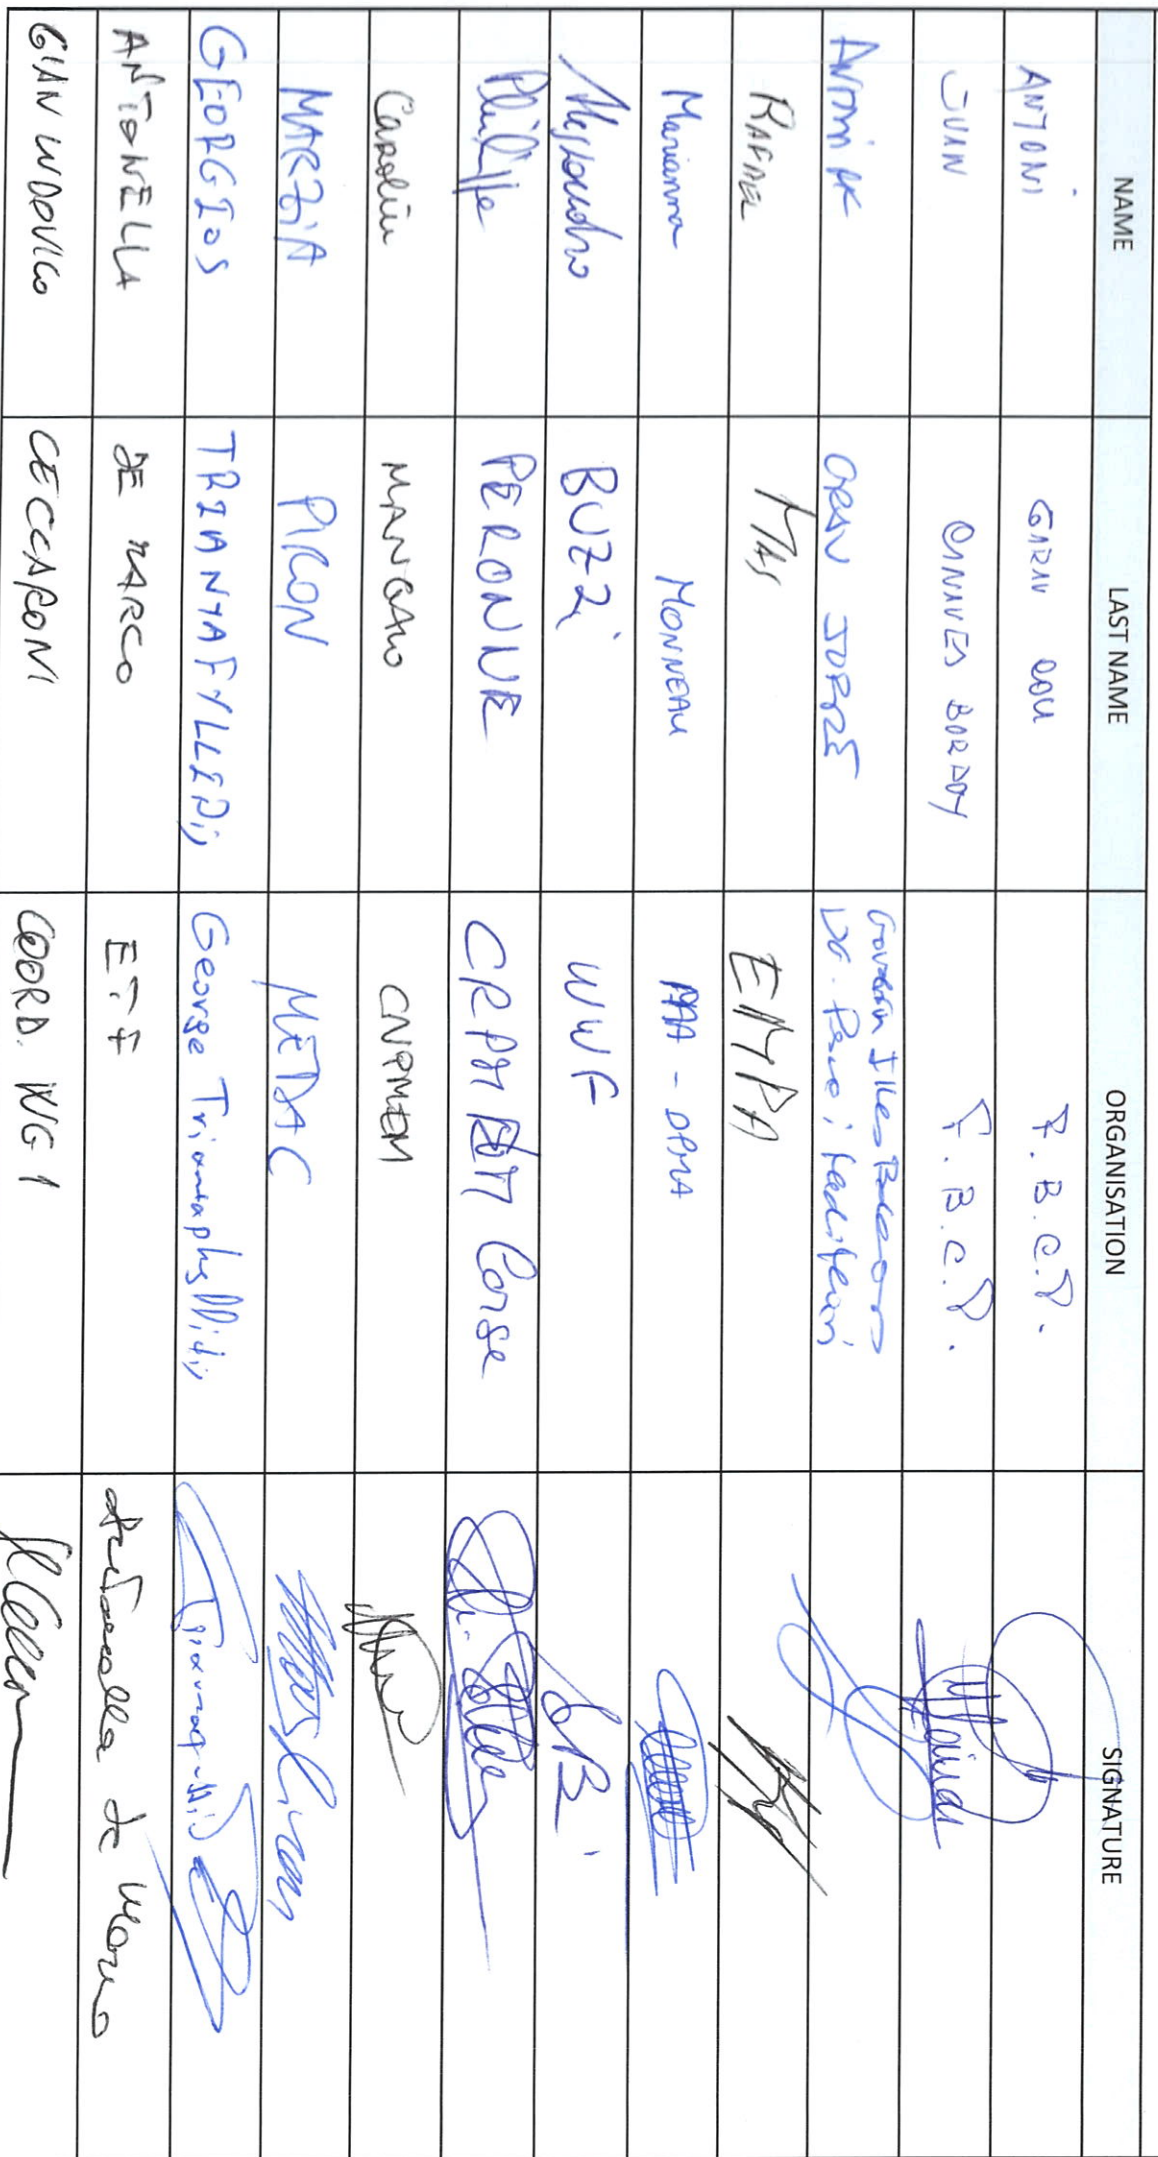 NAME LAST NAME ORGANISATION SIGNATURE
ANTONI GARAU COLL F.B.C.P.
JUAN CANAVES BORDOY F.B.C.P.
GRAU JORDÀ Govern Illes Balears
DG. Pesca i
RAFAEL MAS EMPA
Marianna MONNEAU MAA - DPMA
Alessandro BUZZi WWF
Philippe PERONNE CRPMEM Corse
Caroline MANGALO CNPMEM
MARZiA PIRON MEDAC
GEORGIOS TRIANTAFYLLIDis George Triantaphyllidis
ANTONELLA DE MARCO ETF Antonella de Marco
GIAN LUDOVICO CECCARONI COORD. WG 1